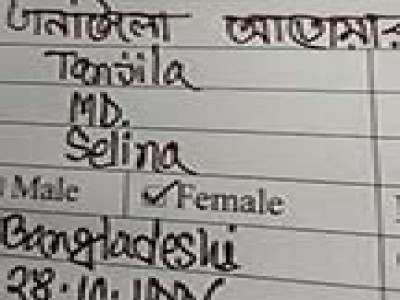 তানজিলা আক্তার
Tanjila
MD.
Selina
Male ✓Female
Bangladeshi